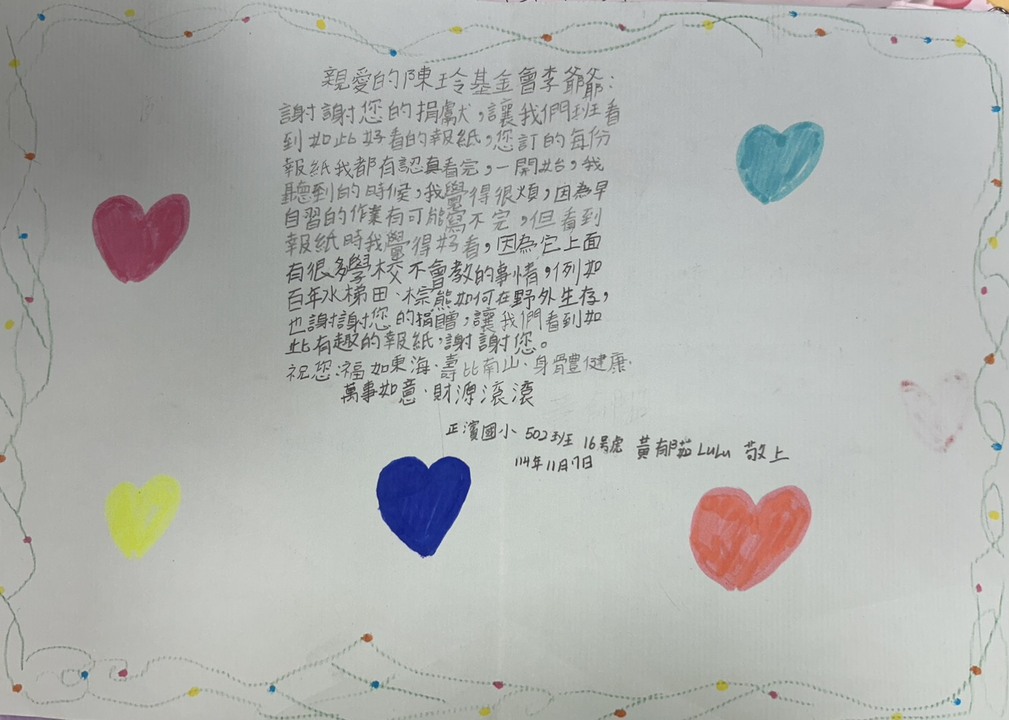 親愛的陳玲基金會李爺爺:
謝謝您的捐獻,讓我們班看
到如此好看的報紙,您訂的每份
報紙我都有認真看完,一開始,我
聽到的時候,我覺得很煩,因為早
自習的作業有可能寫不完,但看到
報紙時我覺得好看,因為它上面
有很多學校不會教的事情,例如
百年水梯田、棕熊如何在野外生存,
也謝謝您的捐贈,讓我們看到如
此有趣的報紙,謝謝您。
祝您:福如東海、壽比南山、身體健康、
萬事如意、財源滾滾
正濱國小 502班 16號 黃郁茹 LuLu 敬上
114年11月7日